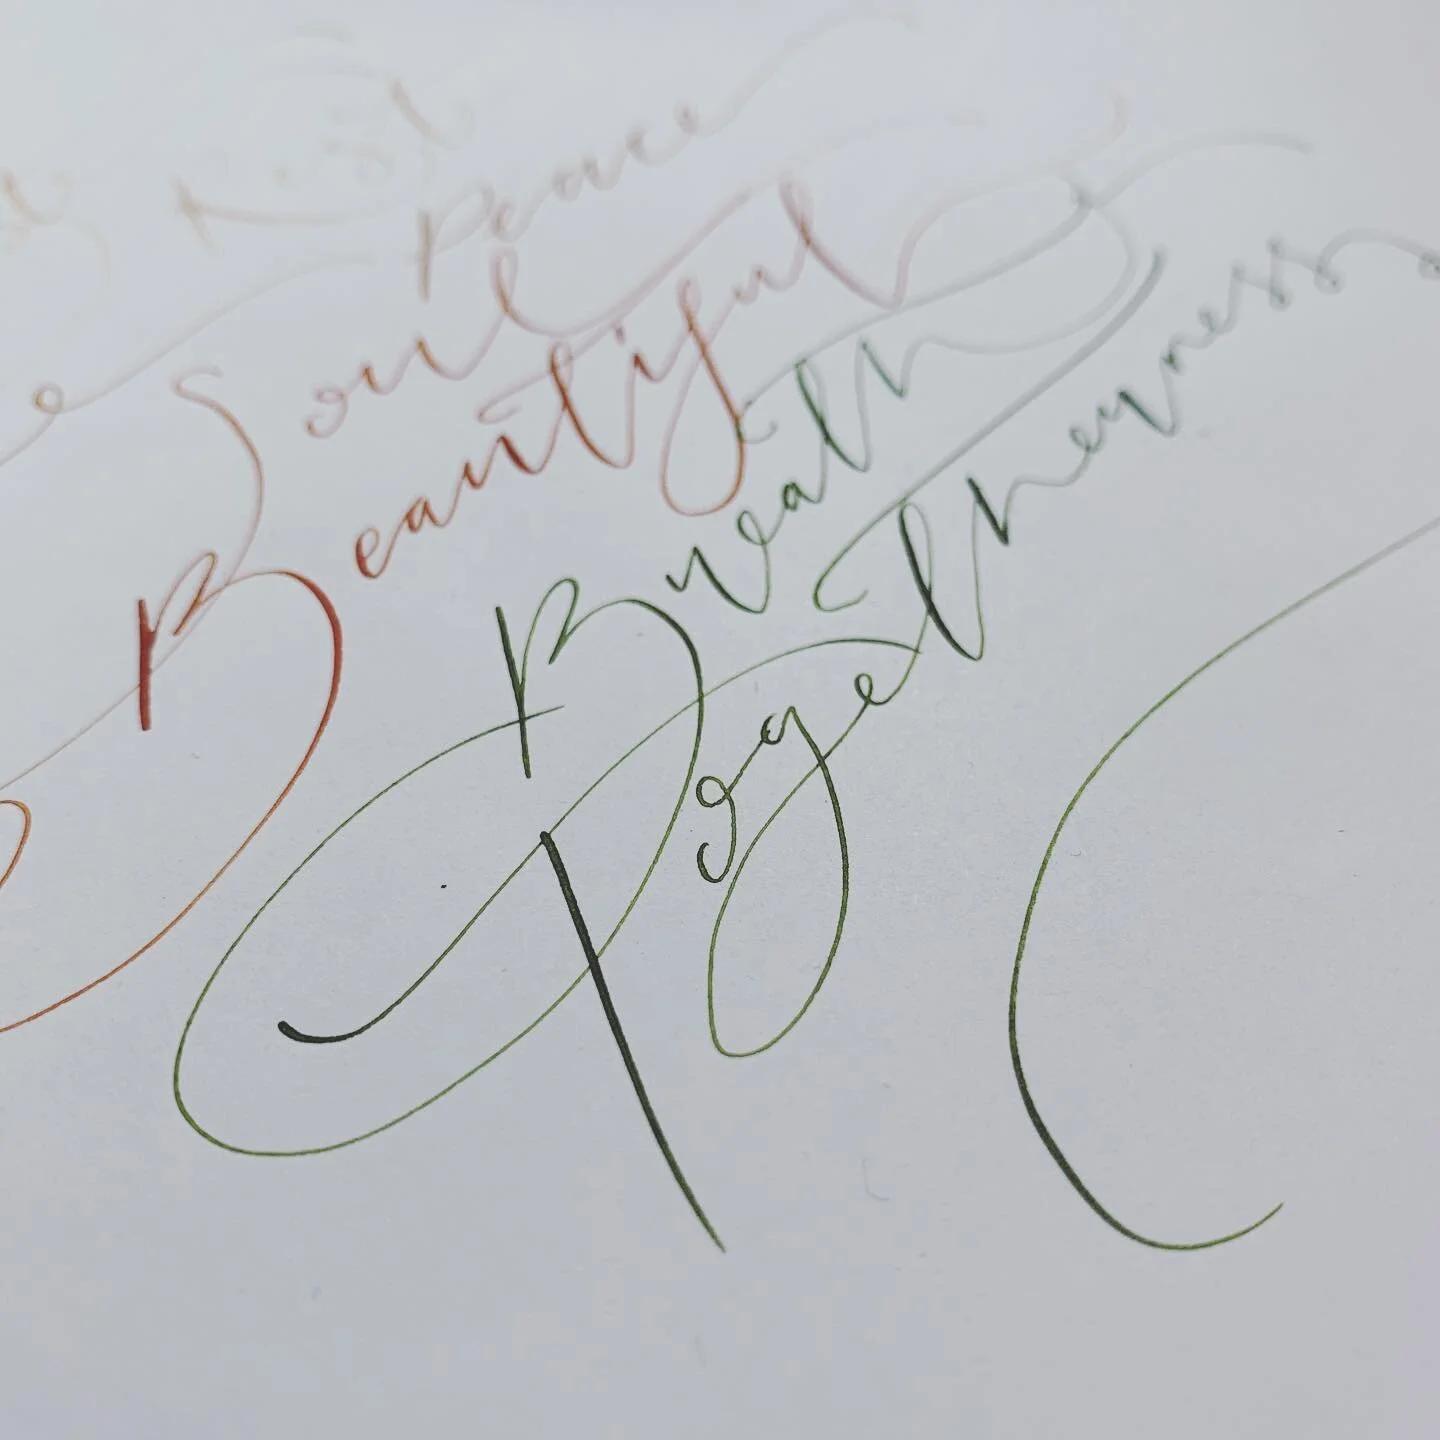 rest
peace
Soul
Beautiful
Breath
Togetherness